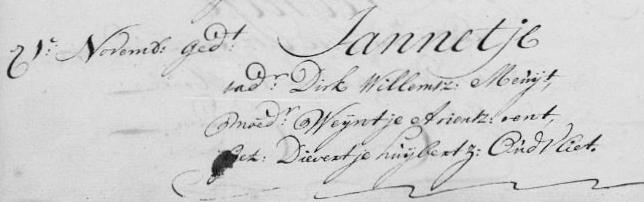 21e: Novemb: ged.t Jannetje
vad.r Dirk Willemsz: Meuijt,
moed.r Weijntje Arientz: vent,
get: Dievertje huijbertz: Oud Vliet.